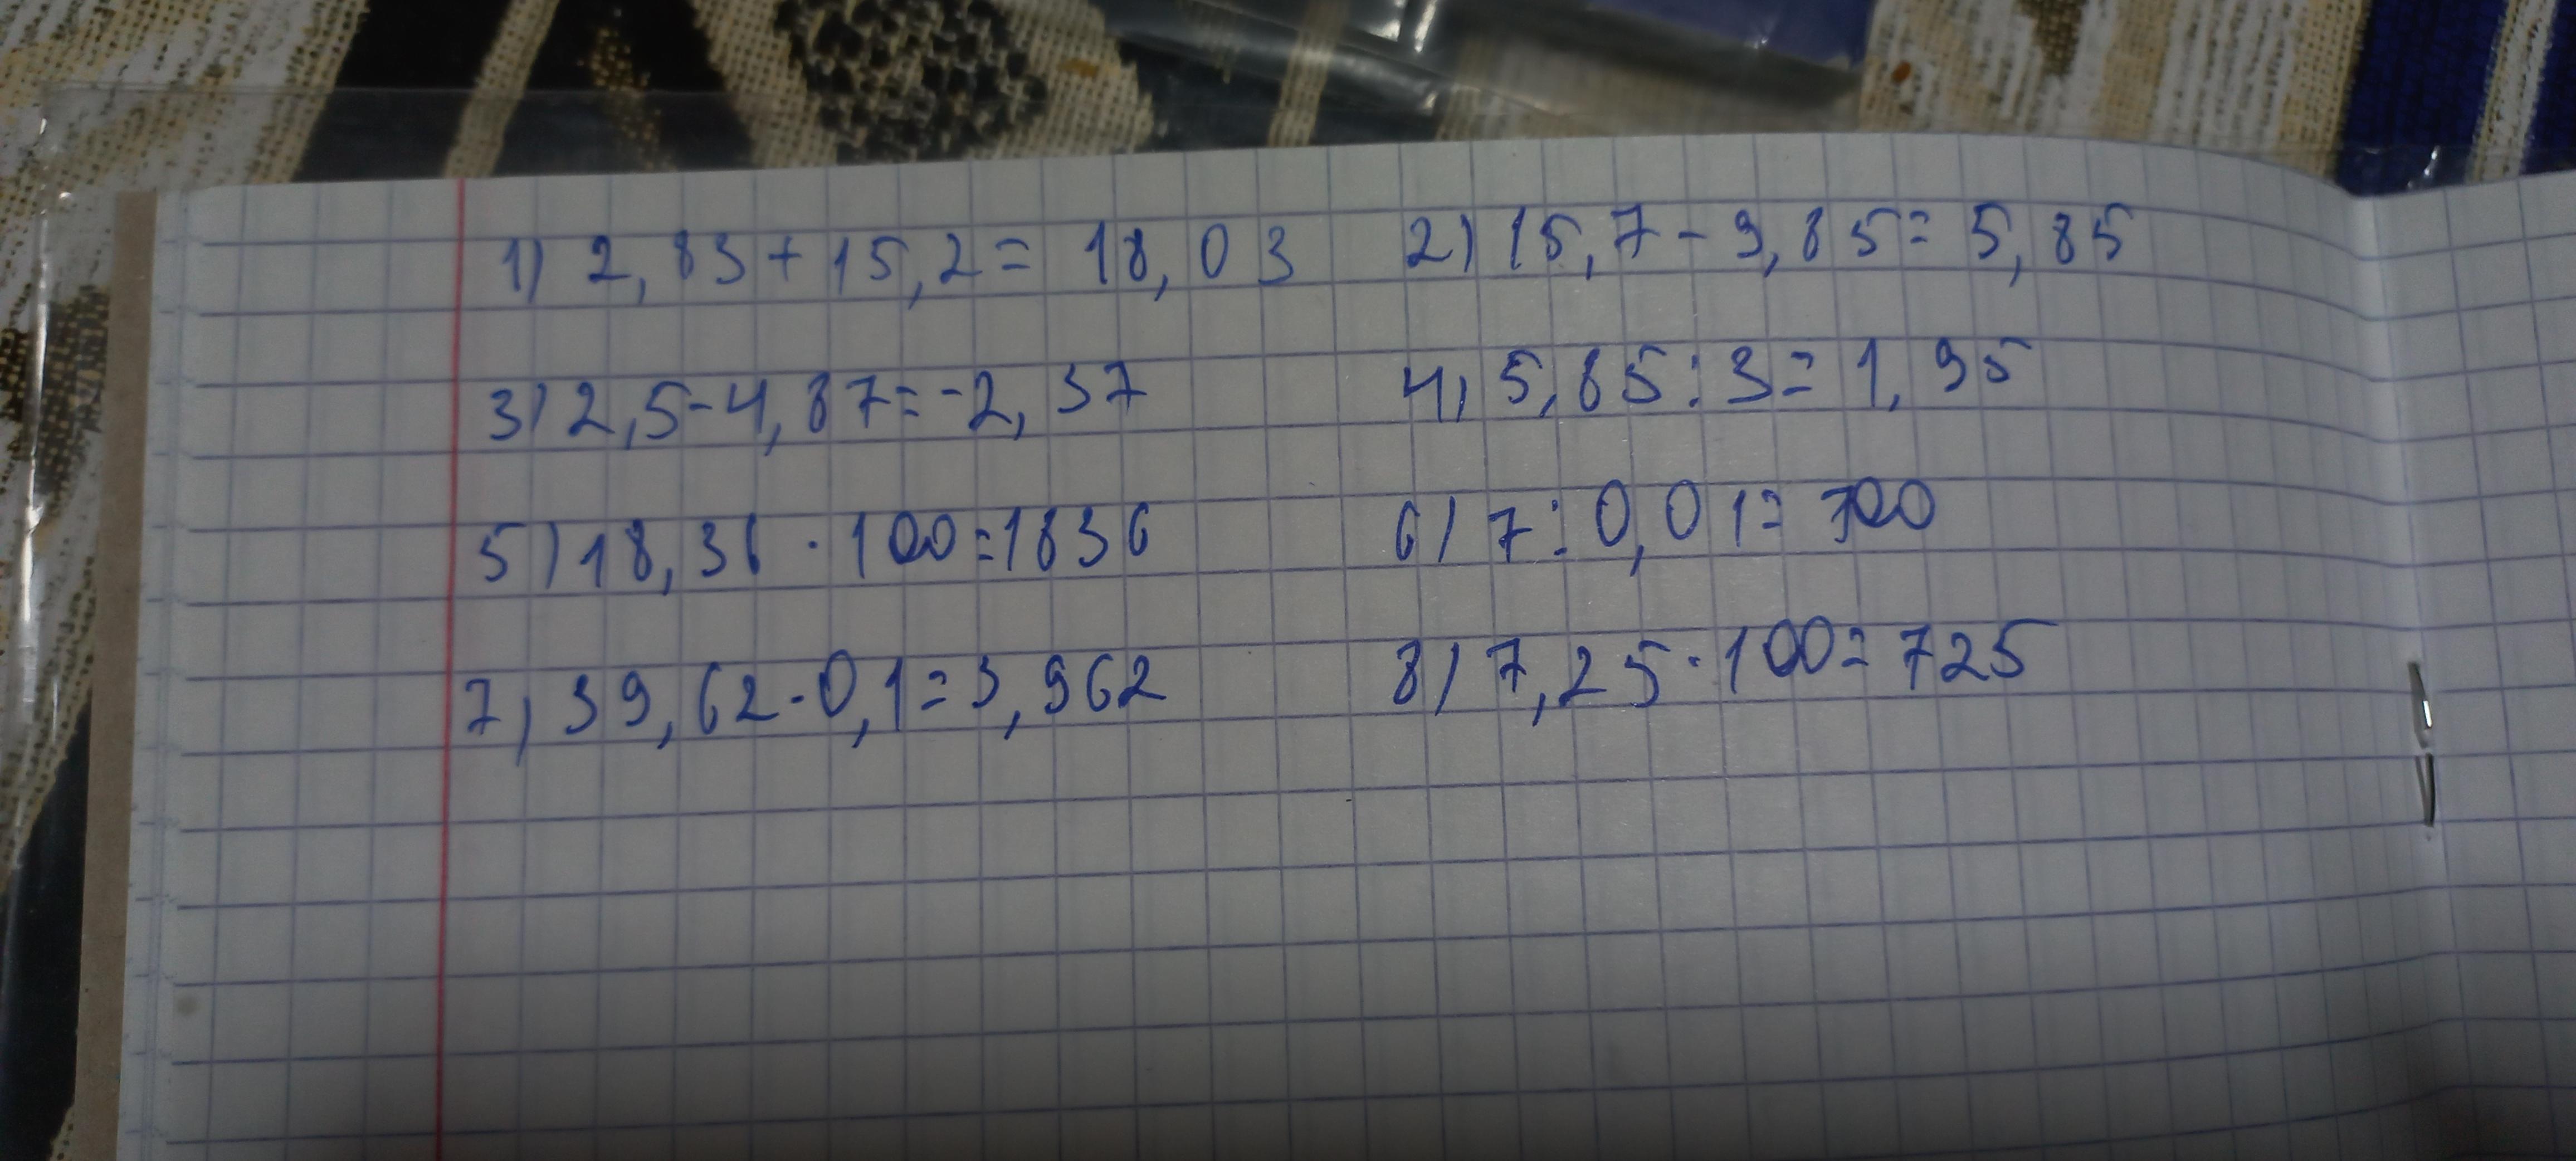 1) 2,83+15,2=18,03 2) 15,7-9,85=5,85
3) 2,5-4,87=-2,37 4) 5,85:3=1,95
5) 18,36·100=1836 6) 7:0,01=700
7) 39,62·0,1=3,962 8) 7,25·100=725